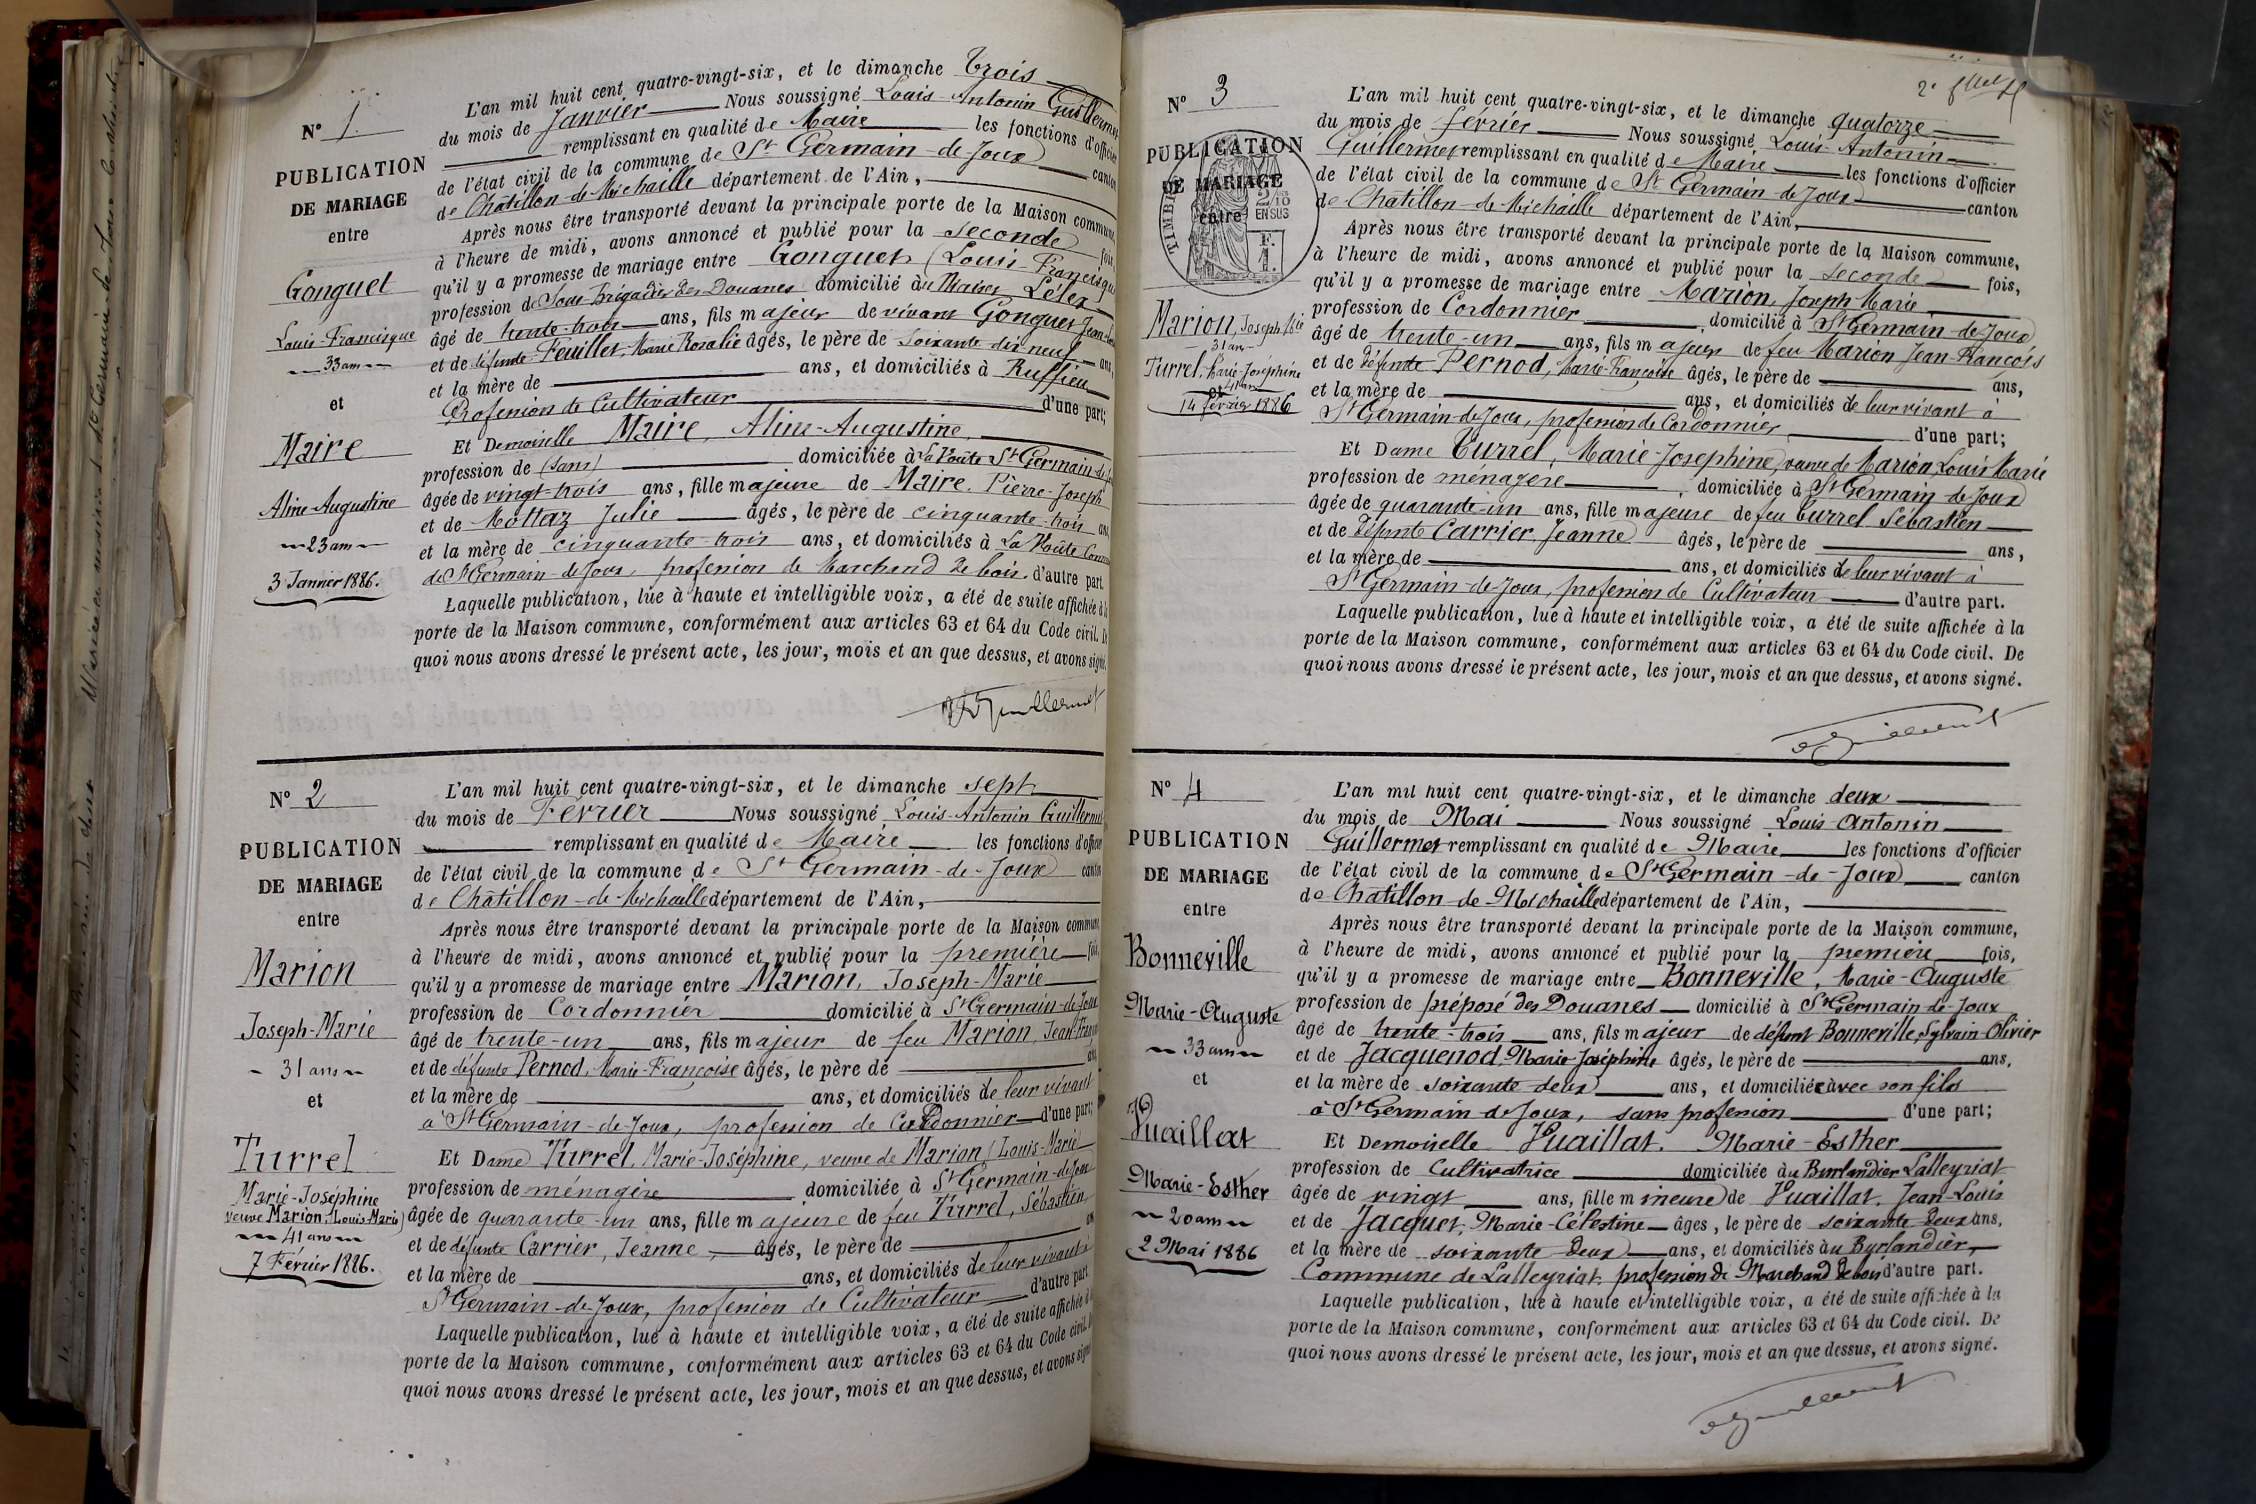 N° 1
PUBLICATION
DE MARIAGE
entre
Gonguet
Louis-Francisque
33 ans
et
Maire
Aline-Augustine
23 ans
3 Janvier 1886.
L'an mil huit cent quatre-vingt-six, et le dimanche trois
du mois de Janvier Nous soussigné Louis-Antonin Guillermet
remplissant en qualité de Maire les fonctions d'officier
de l'état civil de la commune de St Germain-de-Joux canton
de Châtillon-de-Michaille département de l'Ain,
Après nous être transporté devant la principale porte de la Maison commune,
à l'heure de midi, avons annoncé et publié pour la seconde fois,
qu'il y a promesse de mariage entre Gonguet (Louis-Francisque
profession de Sous-Brigadier des Douanes domicilié à Lélex
âgé de trente-trois ans, fils majeur de vivant Gonguet Jean
et de défunte Feuillet, Marie Rosalie âgés, le père de soixante-dix-neuf ans,
et la mère de ans, et domiciliés à Ruffieu
Profession de Cultivateur d'une part;
Et Demoiselle Maire, Aline-Augustine,
profession de (sans) domiciliée à La Voûte St Germain-de-
âgée de vingt-trois ans, fille majeure de Maire, Pierre-Joseph
et de Mottaz Julie âgés, le père de cinquante-trois ans,
et la mère de cinquante-trois ans, et domiciliés à La Voûte Commune
de St Germain-de-Joux, profession de Marchand de bois d'autre part.
Laquelle publication, lue à haute et intelligible voix, a été de suite affichée à la
porte de la Maison commune, conformément aux articles 63 et 64 du Code civil. De
quoi nous avons dressé le présent acte, les jour, mois et an que dessus, et avons signé.
Guillermet
N° 2
PUBLICATION
DE MARIAGE
entre
Marion
Joseph-Marie
31 ans
et
Turrel
Marie-Joséphine
veuve Marion, (Louis-Marie)
41 ans
7 Février 1886.
L'an mil huit cent quatre-vingt-six, et le dimanche sept
du mois de Février Nous soussigné Louis-Antonin Guillermet
remplissant en qualité de Maire les fonctions d'officier
de l'état civil de la commune de St Germain-de-Joux canton
de Châtillon-de-Michaille département de l'Ain,
Après nous être transporté devant la principale porte de la Maison commune,
à l'heure de midi, avons annoncé et publié pour la première fois,
qu'il y a promesse de mariage entre Marion, Joseph-Marie
profession de Cordonnier domicilié à St Germain-de-Joux
âgé de trente-un ans, fils majeur de feu Marion, Jean-François
et de défunte Pernod, Marie-Françoise âgés, le père de ans,
et la mère de ans, et domiciliés de leur vivant
à St Germain-de-Joux, profession de Cordonnier d'une part;
Et Dame Turrel, Marie-Joséphine, veuve de Marion (Louis-Marie)
profession de ménagère domiciliée à St Germain-de-Joux
âgée de quarante-un ans, fille majeure de feu Turrel, Sébastien
et de défunte Carrier, Jeanne, âgés, le père de ans
et la mère de ans, et domiciliés de leur vivant à
St Germain-de-Joux, profession de Cultivateur d'autre part
Laquelle publication, lue à haute et intelligible voix, a été de suite affichée à la
porte de la Maison commune, conformément aux articles 63 et 64 du Code civil. De
quoi nous avons dressé le présent acte, les jour, mois et an que dessus, et avons signé
2e
N° 3
PUBLICATION
DE MARIAGE
entre
TIMBRE
2/10
EN SUS
F.
1.
Marion, Joseph Mie
31 ans
Turrel, Marie-Joséphine
et 41 ans
14 février 1886
L'an mil huit cent quatre-vingt-six, et le dimanche quatorze
du mois de février Nous soussigné Louis-Antonin
Guillermet remplissant en qualité de Maire les fonctions d'officier
de l'état civil de la commune de St Germain-de-Joux canton
de Châtillon-de-Michaille département de l'Ain,
Après nous être transporté devant la principale porte de la Maison commune,
à l'heure de midi, avons annoncé et publié pour la seconde fois,
qu'il y a promesse de mariage entre Marion, Joseph-Marie
profession de Cordonnier domicilié à St Germain-de-Joux
âgé de trente-un ans, fils majeur de feu Marion Jean-François
et de défunte Pernod, Marie-Françoise âgés, le père de ans,
et la mère de ans, et domiciliés de leur vivant à
St Germain-de-Joux, profession de Cordonnier d'une part;
Et Dame Turrel, Marie-Josephine, veuve de Marion, Louis Marie
profession de ménagère, domiciliée à St Germain-de-Joux
âgée de quarante-un ans, fille majeure de feu Turrel Sébastien
et de défunte Carrier Jeanne âgés, le père de ans,
et la mère de ans, et domiciliés de leur vivant à
St Germain-de-Joux, profession de Cultivateur d'autre part.
Laquelle publication, lue à haute et intelligible voix, a été de suite affichée à la
porte de la Maison commune, conformément aux articles 63 et 64 du Code civil. De
quoi nous avons dressé le présent acte, les jour, mois et an que dessus, et avons signé.
Guillermet
N° 4
PUBLICATION
DE MARIAGE
entre
Bonneville
Marie-Auguste
33 ans
et
Vuaillat
Marie-Esther
20 ans
2 Mai 1886
L'an mil huit cent quatre-vingt-six, et le dimanche deux
du mois de Mai Nous soussigné Louis-Antonin
Guillermet remplissant en qualité de Maire les fonctions d'officier
de l'état civil de la commune de St Germain-de-Joux canton
de Châtillon-de-Michaille département de l'Ain,
Après nous être transporté devant la principale porte de la Maison commune,
à l'heure de midi, avons annoncé et publié pour la première fois,
qu'il y a promesse de mariage entre Bonneville, Marie-Auguste
profession de préposé des Douanes domicilié à St Germain-de-Joux
âgé de trente-trois ans, fils majeur de défunt Bonneville, Sylvain-Olivier
et de Jacquenod, Marie-Joséphine âgés, le père de ans,
et la mère de soixante-deux ans, et domiciliée avec son fils
à St Germain-de-Joux, sans profession d'une part;
Et Demoiselle Vuaillat, Marie-Esther
profession de Cultivatrice domiciliée au Burlandier Lalleyriat
âgée de vingt ans, fille mineure de Vuaillat, Jean-Louis
et de Jacquet, Marie-Célestine âgés, le père de soixante-deux ans,
et la mère de soixante-deux ans, et domiciliés au Burlandier,
Commune de Lalleyriat, profession de Marchand de bois d'autre part.
Laquelle publication, lue à haute et intelligible voix, a été de suite affichée à la
porte de la Maison commune, conformément aux articles 63 et 64 du Code civil. De
quoi nous avons dressé le présent acte, les jour, mois et an que dessus, et avons signé.
Guillermet